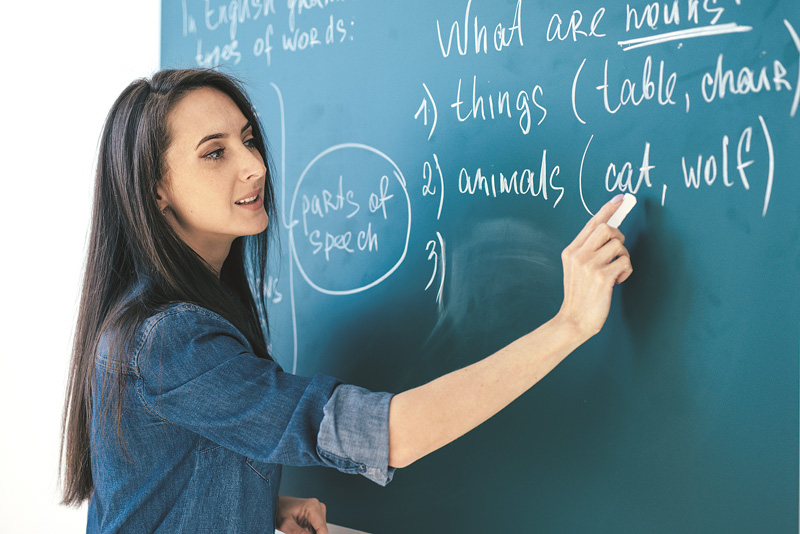 In English
types of words:
parts of
speech
What are nouns?
1) things (table, chair)
2) animals (cat, wolf)
3)